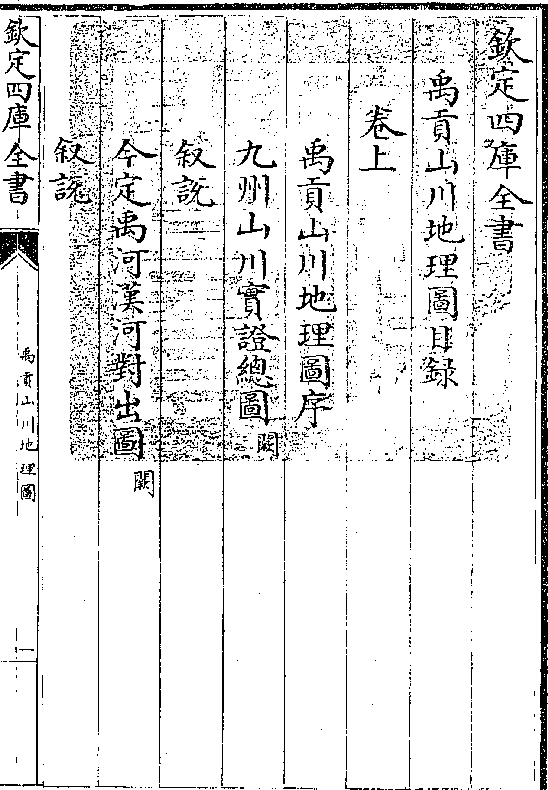 欽定四庫全書
禹貢山川地理圖目錄
卷上
禹貢山川地理圖序
九州山川實證總圖 闕
叙說
今定禹河漢河對出圖 闕
叙說
欽定四庫全書
禹貢山川地理圖
一